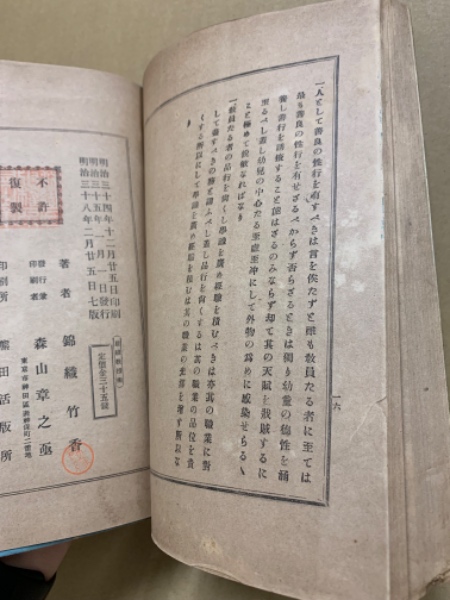 一人として善良の性行を有すべきは言を俟たずと雖も教員たる者に至ては
最も善良の性行を有せざるべからず否らざるときは獨り幼童の徳性を涵
養し善行を誘掖すること能はざるのみならず却て其の天賦を戕賊するに
至るべし蓋し幼兒の中心たる至虚至冲にして外物の爲めに感染せらるゝ
こと極めて鋭敏なればなり
一教員たる者の品行を尚くし學識を廣め經驗を積むべきは亦其の職業に對
して盡すべきの務と謂ふべし蓋し品行を尚くするは其の職業の品位を貴
くする所以にして學識を廣め經驗を積むは其の職業の光澤を增す所以な
り
一六
不許
復製
明治三十四年十二月廿五日印刷
明治三十五年一月一日發行
明治三十八年二月廿五日七版
定價金三十五錢
著者 錦織竹香
發行兼
印刷者 森山章之丞
印刷所 熊田活版所